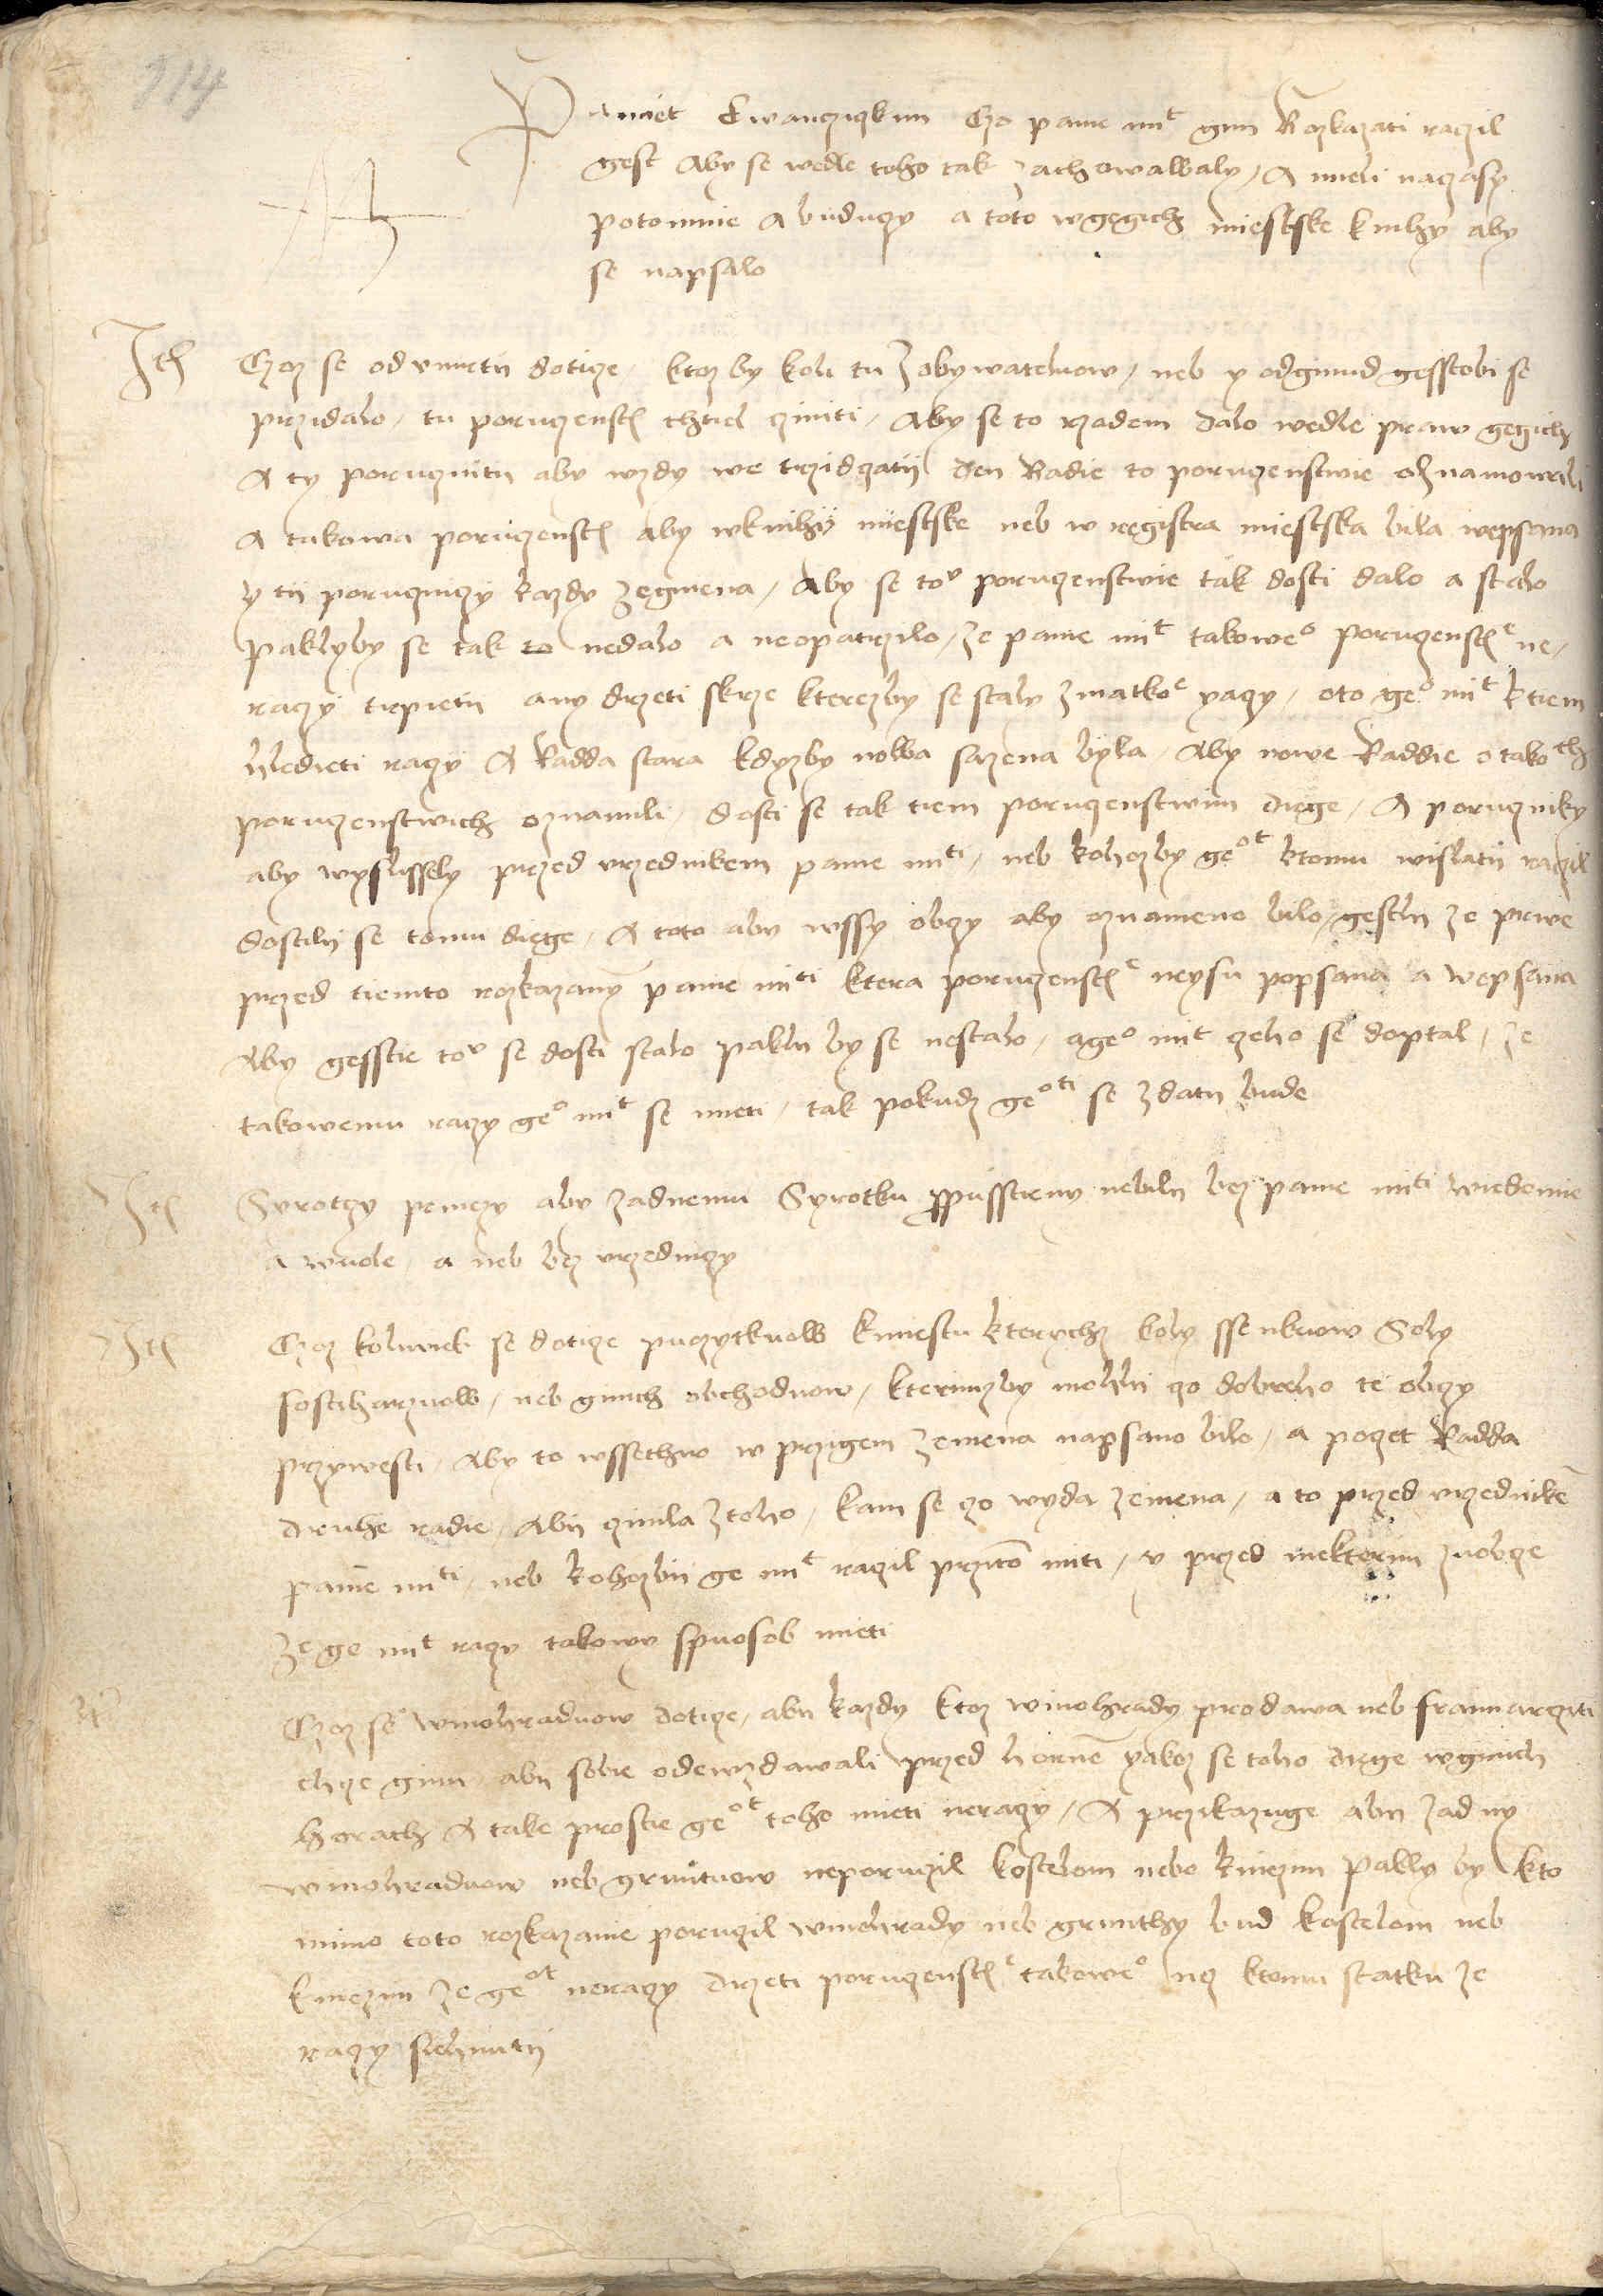 114
Pamiet Ewanczizkim Czo panie mit gim Rozkazati raczil
gest Aby se wedle toho tak zachowawaly, A mieli naczasy
potomnie A buduczy a toto wgegich miestske knihy aby
se napsalo
Ite Czoz se odumrtii dotize, ktoz by koli tu z obywateluow, neb y odginud gesstobi se
przidalo, tu poruczenste chtiel cziniti, Aby se to rzadem dalo wedle praw gegich
A ty poruczniti aby wzdy we trzidczatii Den Radie to poruczenstwie oznamowali
A takowa poruczenste aby wknihy miestske neb w registra miestska bila wepsana
y tii poruczniczy kazdy zegmena, Aby se tou poruczenstwie tak dosti dalo a stalo
Paklyby se tak to nedalo a neopatrzilo, ze panie mit takoweo poruczenste ne,
raczy trpietii any drzeti skrze kterezby se staly zmatkoe yaczy, oto geo mit ktiem
hledieti raczy A Radda stara kdyzby nowa sazena byla, Aby nowe Raddie o takoch
poruczenstwich oznamili, dosti se tak tiem poruczenstwim diege, A poruczniky
aby wyslissely przed urzednikem panie miti, neb kohozby geot ktomu wislatii raczil
dostilii se tomu diege, A toto aby wssy obczy aby oznameno bilo, gestli ze prwe
przed tiemto rozkazany panie miti ktera poruczenste neysu popsana a wepsana
Aby gesstie tou se dosti stalo paklii by se nestalo, ageo mit czeho se doptal, ze
takowemu raczy geo mit se mieti, tak pokudz geoti se zdatii bude
Ite Syrotczy penieczy aby zadnemu Syrotku propusstieny nebilii bez panie miti wiedomie
a wuole, a neb bez urzedniczy
Ite Czoz koliwiek se dotize puozytkuow kmiestu kterychz koly ssenkuow Soly
sostiharzuow, neb ginich obchoduow, kterimzby mohli czo dobreho te obczy
przywesti, Aby to wssechno w przigem zemena napsano bilo, a poczet Radda
druhe radie, Abii czinila ztoho, kam se czo wyda zemena, a to przed urzednike
panie miti, neb kohozbii ge mit raczil przito miti, y przed niekterim zuobcze
ze ge mit raczy takowy spuosob mieti
Ite Czoz se winohraduow dotize, abii kazdy ktoz winohrady prodawa neb frimarcziti
chcze ginu, abii sobie odewzdawali przed horne yakoz se toho diege wginich
horach A take prostie geot toho mieti neraczy, A przikazuge abii zadny
winohraduow neb gruntuow neporuczil kostelom nebo kniezim Pakly by kto
mimo toto rozkazanie poruczil winohrady neb grunthy bud kostelom neb
kniezim ze geot neraczy drzeti poruczenste takoweo nez ktomu statku ze
raczy siehnutii